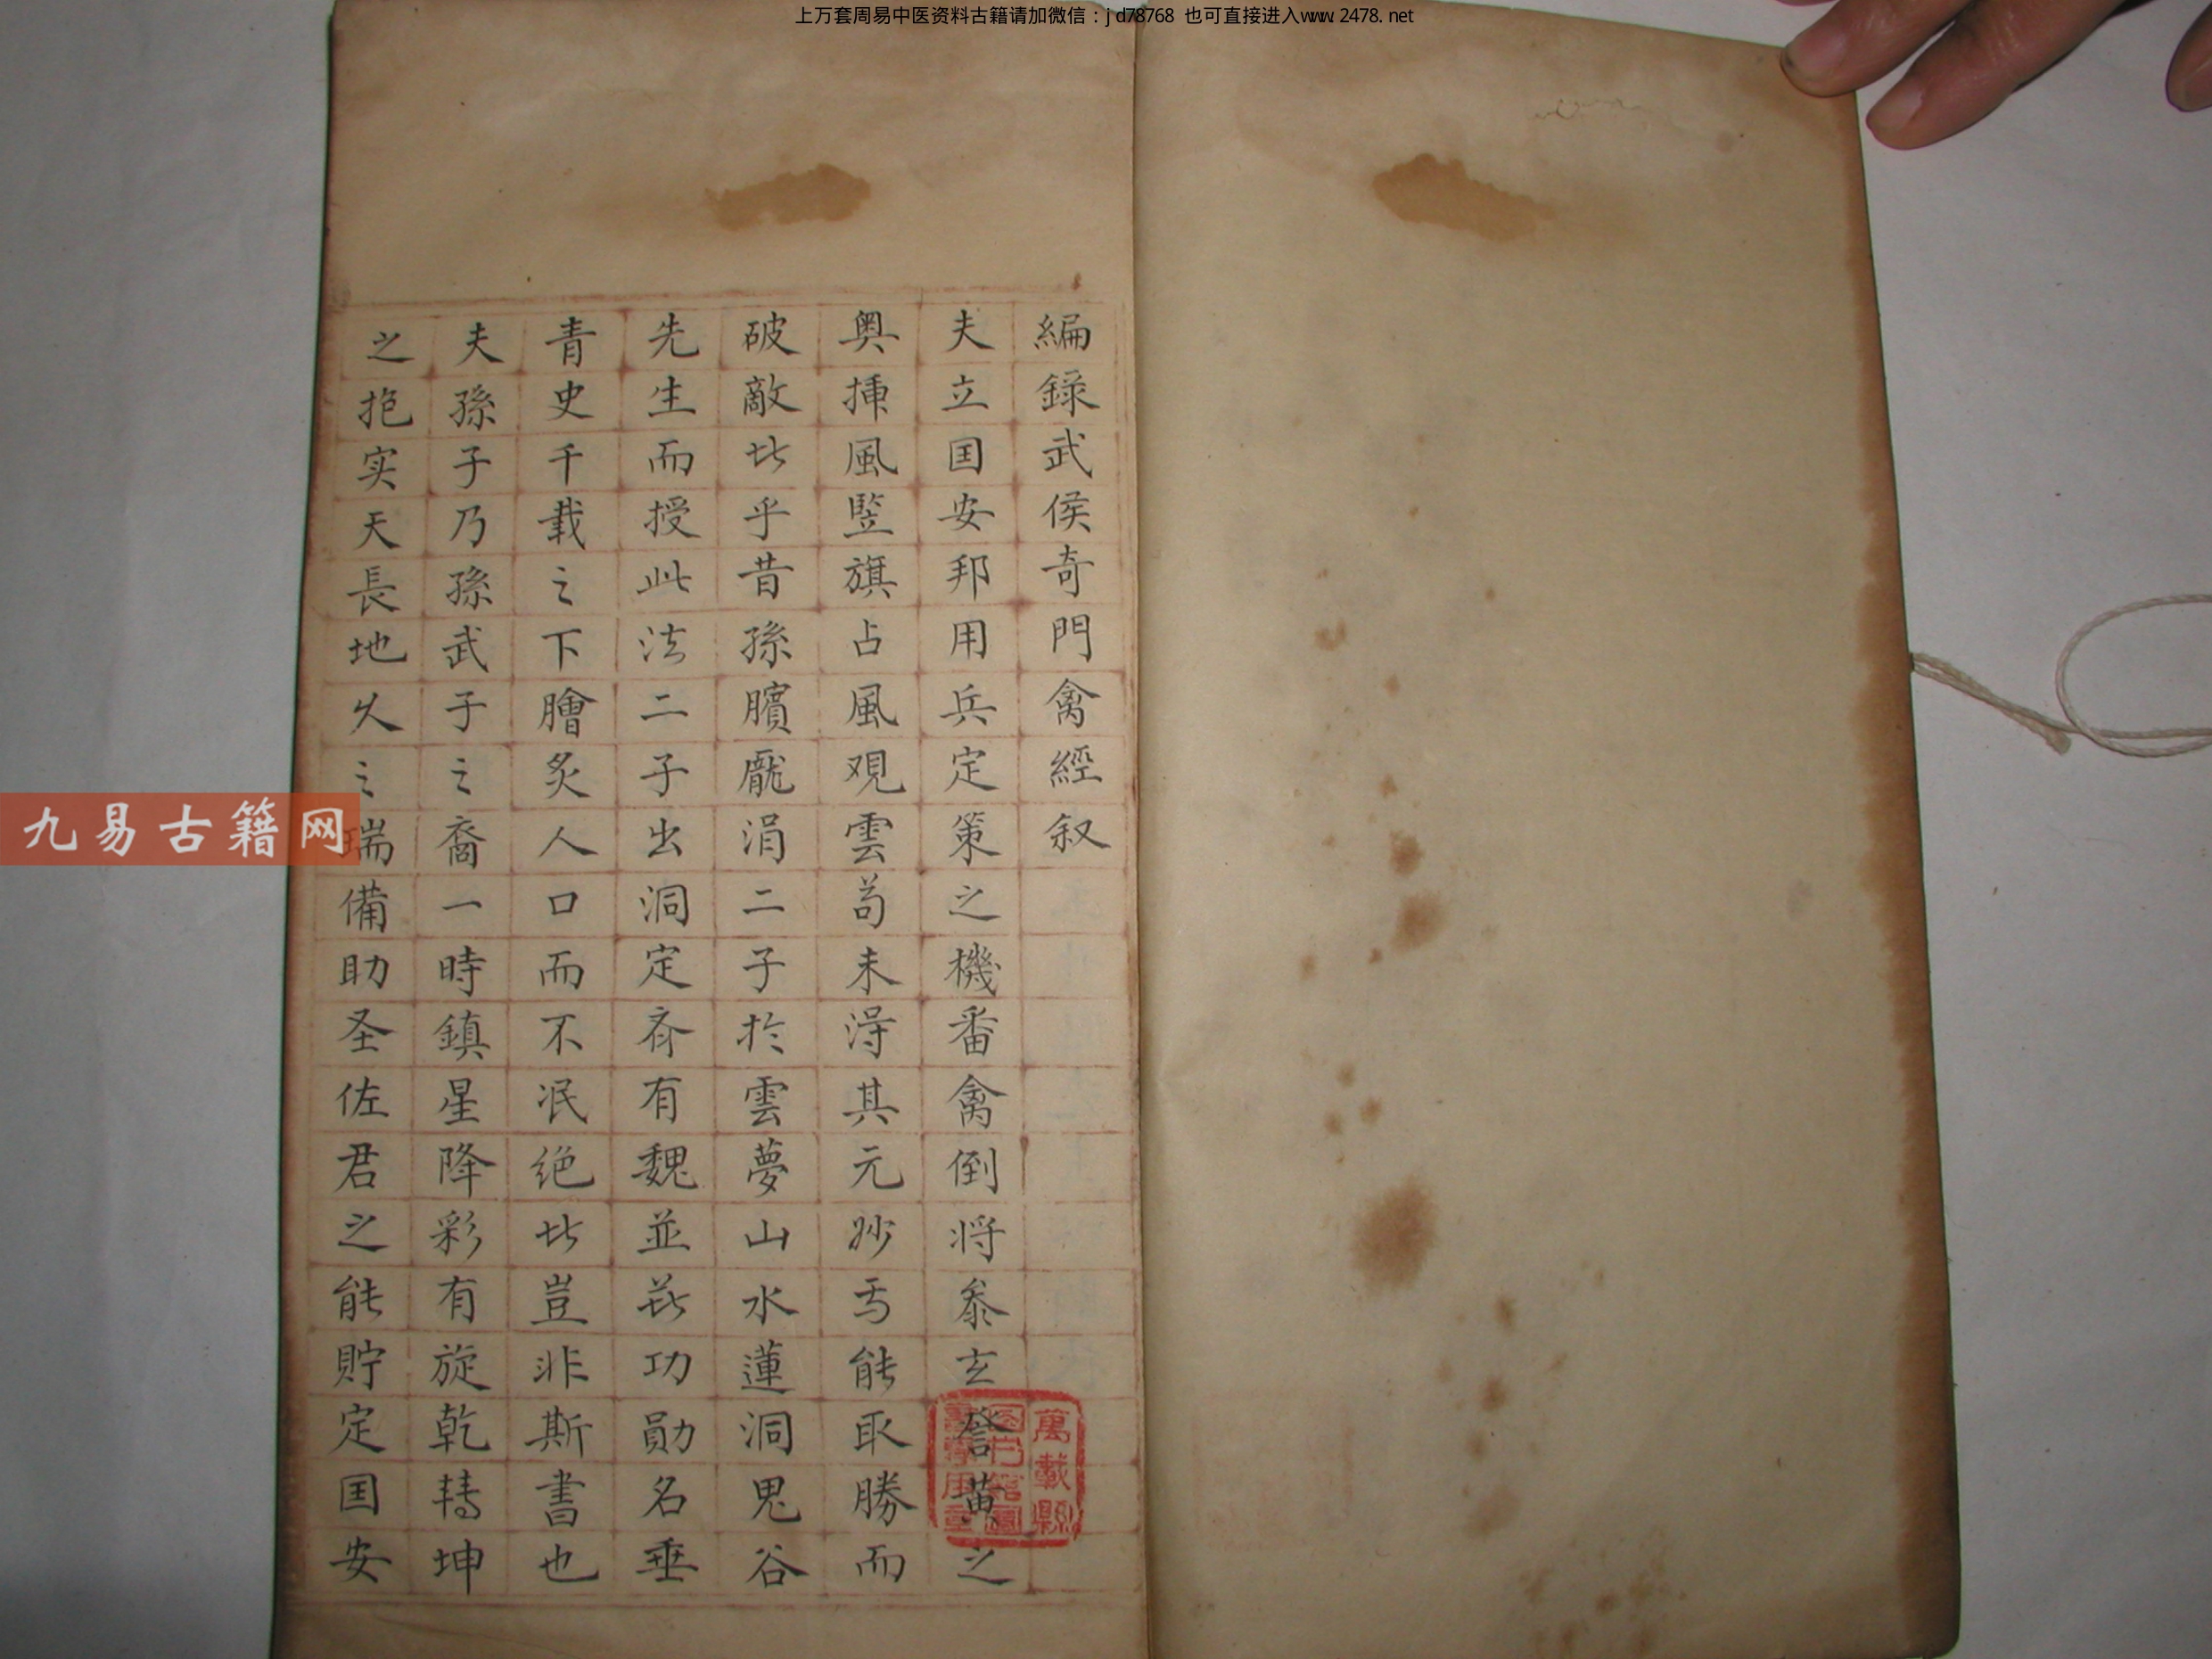 上万套周易中医资料古籍请加微信：jd78768 也可直接进入www.2478.net
編錄武侯奇門禽經叙
夫立囯安邦用兵定策之機番禽倒将叅玄詧黄之
奥揷風竪旗占風观雲苟未淂其元妙焉能取勝而
破敵此乎昔孫臏龐涓二子扵雲夢山水蓮洞鬼谷
先生而授此法二子出洞定斉有魏並花功勛名垂
青史千载之下膾炙人口而不泯绝此豈非斯書也
夫孫子乃孫武子之裔一時鎮星降彩有旋乾轉坤
之抱实天長地久之瑞備助圣佐君之能貯定囯安
九易古籍网
萬載縣